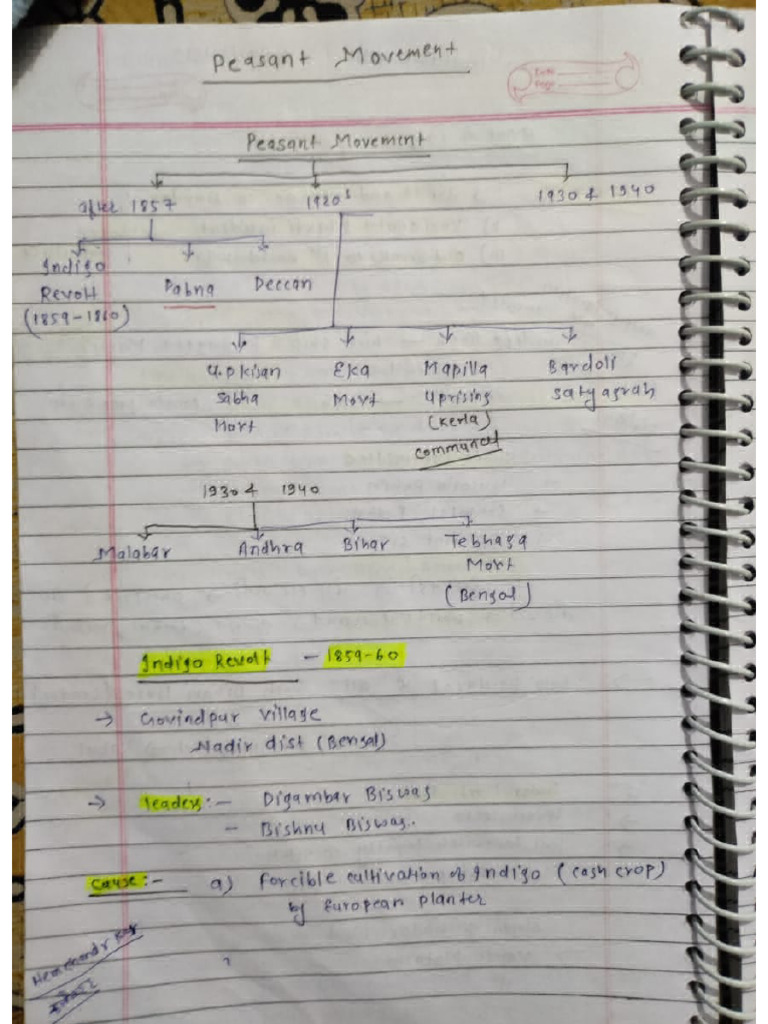 Peasant Movement
Date
Page
Peasant Movement
after 1857 1920s 1930 & 1940
Indigo Pabna Deccan
Revolt
(1859-1860)
U.P kisan Eka Mapilla Bardoli
Sabha Movt Uprising Satyagrah
Movt (Kerla)
communal
1930 & 1940
Malabar Andhra Bihar Tebhaga
Movt
(Bengal)
Indigo Revolt - 1859-60
→ Govindpur village
Nadir dist (Bengal)
→ leaders:- Digambar Biswas
- Bishnu Biswas.
Cause:- a) Forcible cultivation of Indigo (cash crop)
by European planter
Hemchandr